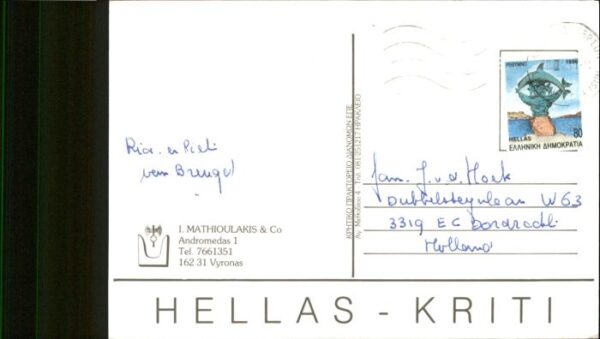 Ria en Piet
van Breugel
I. MATHIOULAKIS & Co
Andromedas 1
Tel. 7661351
162 31 Vyronas
ΚΡΗΤΙΚΟ ΠΡΑΚΤΟΡΕΙΟ ΔΙΑΝΟΜΩΝ ΕΠΕ
Αγ. Μεθοδίου 4 Τηλ. 081/251217 ΗΡΑΚΛΕΙΟ
HELLAS 80
ΕΛΛΗΝΙΚΗ ΔΗΜΟΚΡΑΤΙΑ
Fam. J. v. d. Hoek
Dubbelsteynlaan W 63
3319 EC Dordrecht
Holland
HELLAS - KRITI